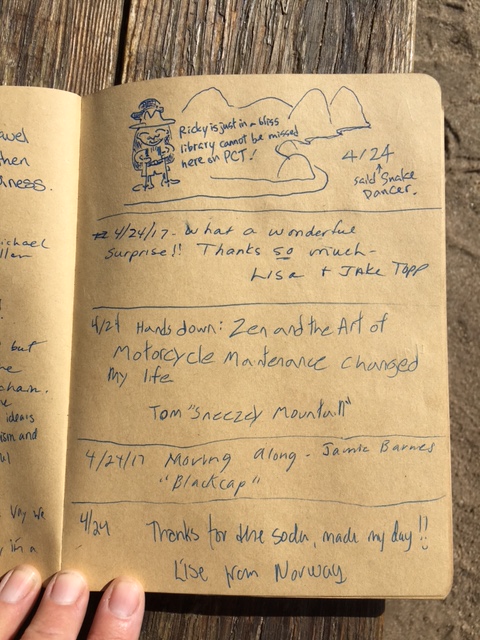 avel
then
dness.
ichael
llen
but
chain.
ideas
ism and
Why we
in a
Ricky is just in a bliss
library cannot be missed
here on PCT!
4/24
said Snake
Dancer.
4/24/17 - what a wonderful
Surprise!! Thanks so much -
Lisa + Jake Topp
4/24 Hands down: Zen and the Art of
Motorcycle Maintenance changed
my life
Tom "Sneezey Mountain"
4/24/17 Moving along - Jamie Barnes
"Blackcap"
4/24 Thanks for the soda, made my day!!
Lise from Norway